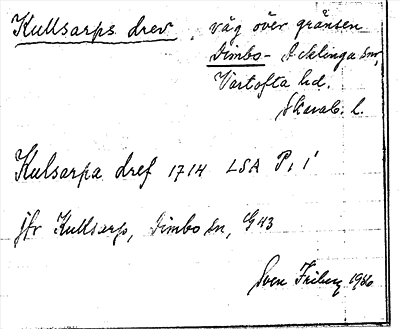 Kullsarps drev, väg över gränsen
Dimbo - Acklinga snr,
Vartofta hd.
Skarab. l.
Kulsarpa dref 1714 LSA P. 1
jfr Kullsarp, Dimbo sn, G 43
Sven Friberg 1946